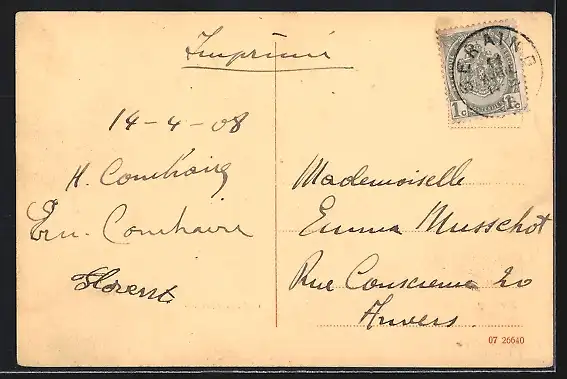 Imprimé
SERAING
1c 1c
14-4-08
H. Comhaire
Ern. Comhaire
Mademoiselle
Emma Musschot
Rue Conscience 20
Anvers.
07 26640